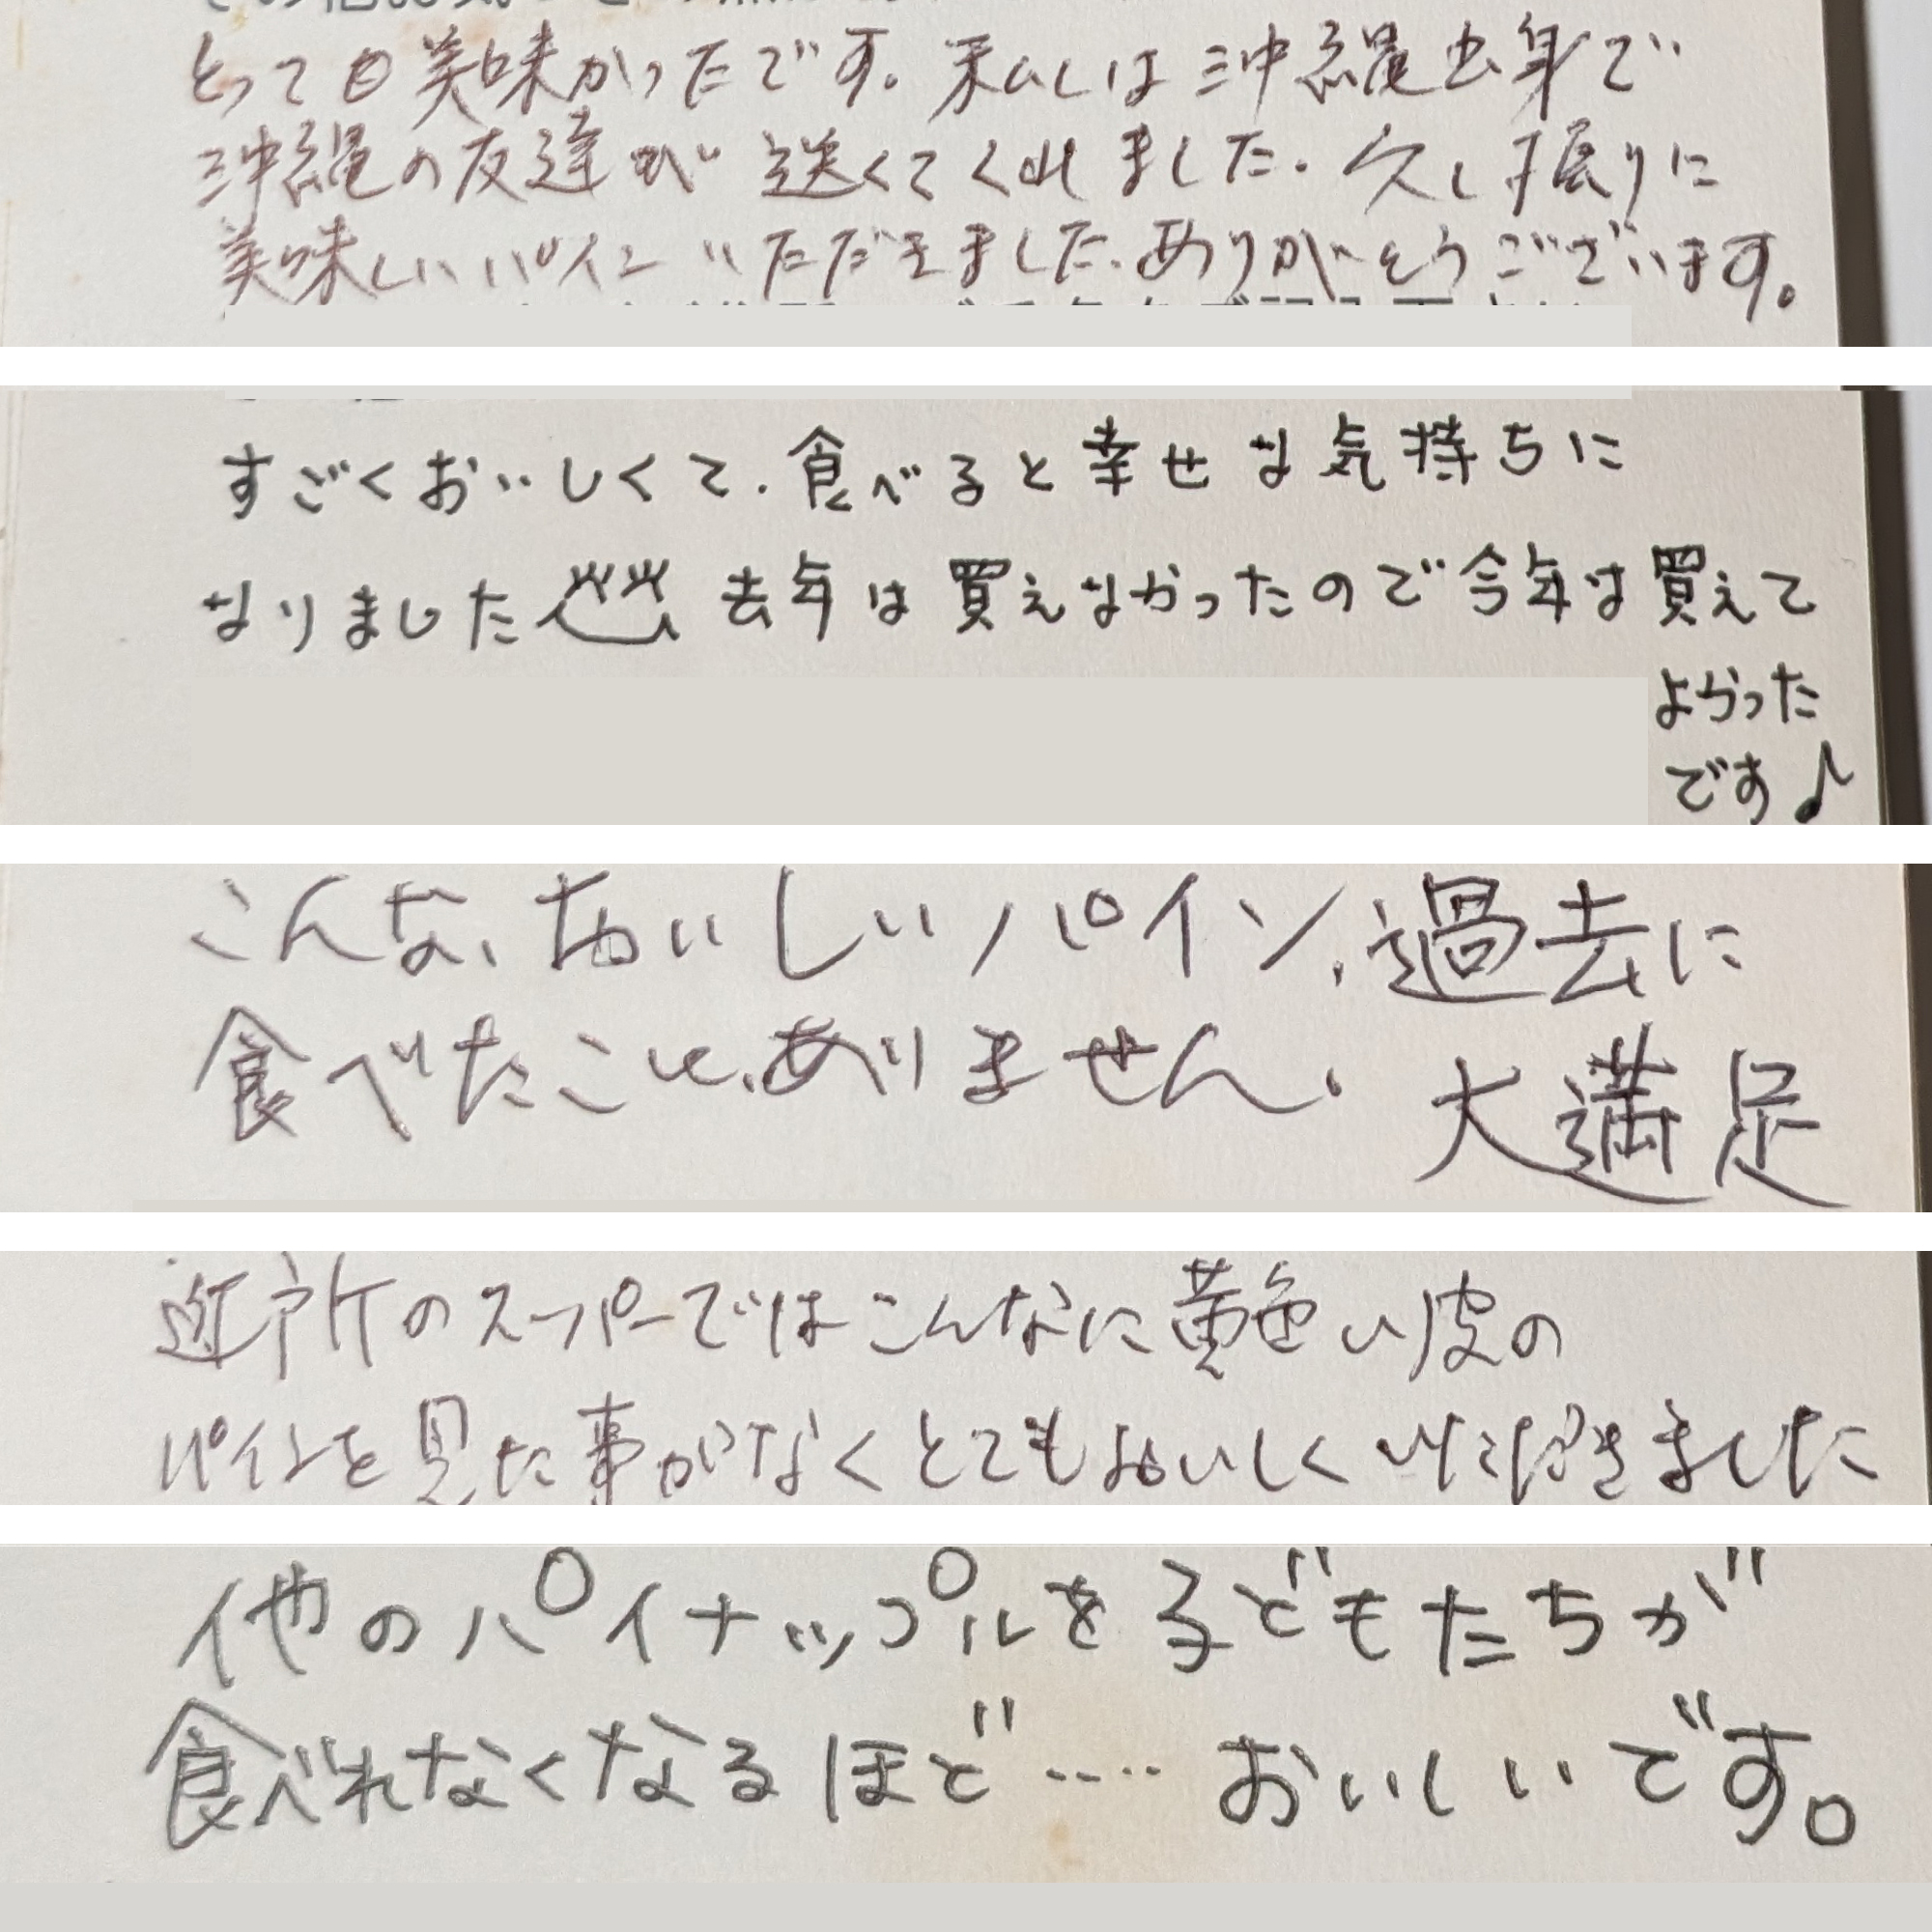 とっても美味かったです。私しは沖縄出身で
沖縄の友達が送くてくれました。久し振りに
美味しいパインいただきました。ありがとうございます。
すごくおいしくて、食べると幸せな気持ちに
なりました 去年は買えなかったので今年は買えて
よかった
です♪
こんな、おいしいパイン、過去に
食べたこと、ありません。大満足
近所のスーパーではこんなに黄色い皮の
パインを見た事がなくとてもおいしくいただきました
他のパイナップルを子どもたちが
食べれなくなるほど‥‥おいしいです。